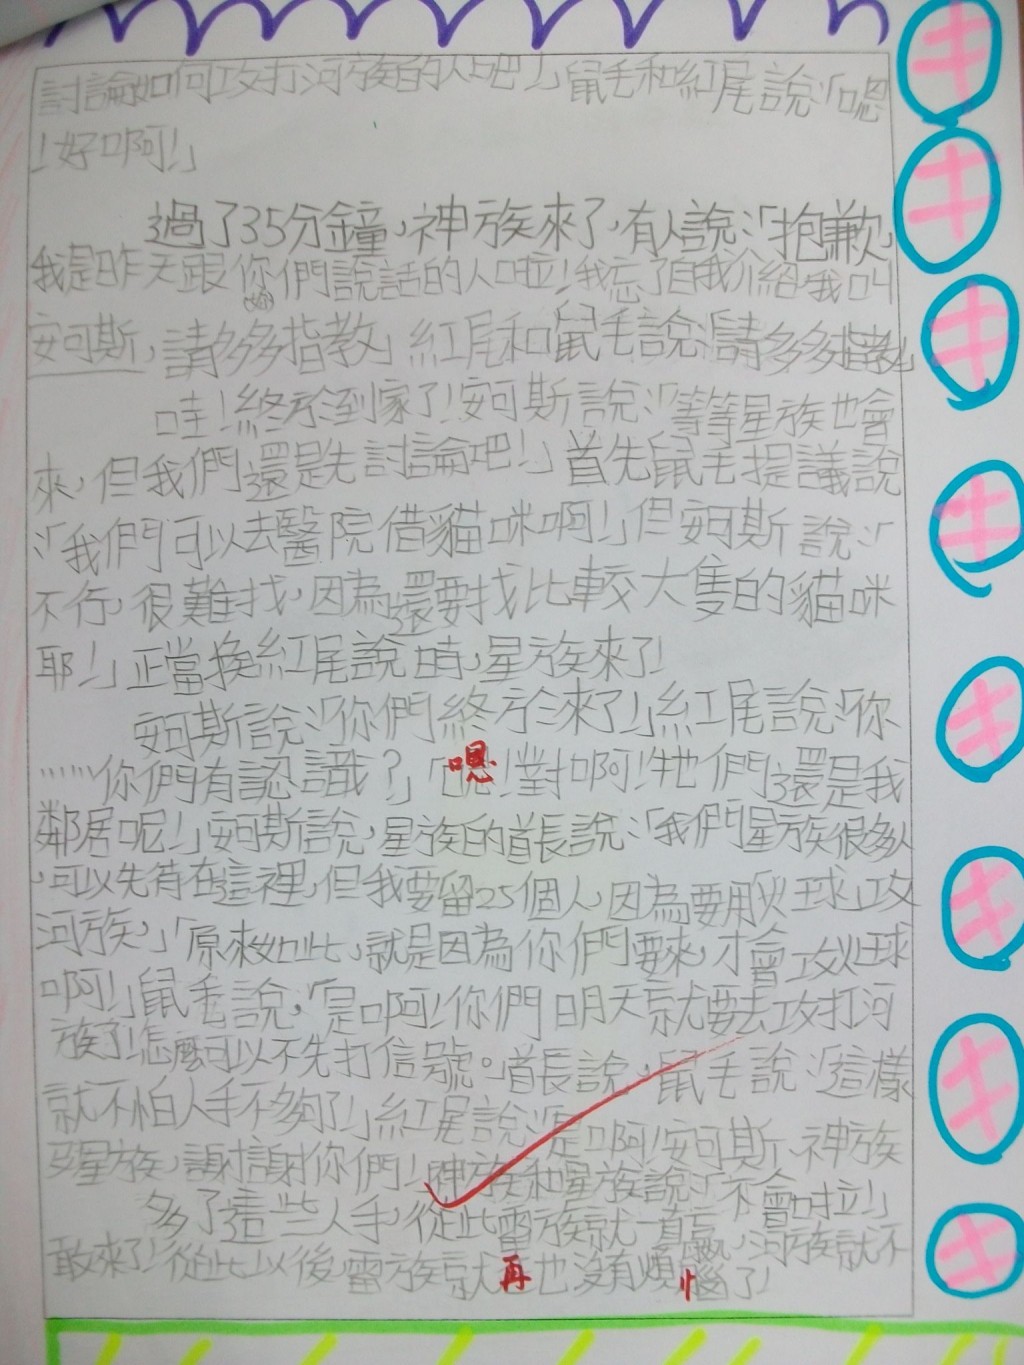 討論如何攻打河族的人吧!」鼠毛和紅尾說:「嗯
!好啊!」
過了35分鐘,神族來了,有人說:「抱歉,
我是昨天跟你們說話的人啦!我忘了自我介紹,我叫
安可斯,請多多指教」紅尾和鼠毛說:「請多多指教」
哇!終於到家了!安可斯說:「等等星族也會
來,但我們還是先討論吧!」首先鼠毛提議說
:「我們可以去醫院借貓咪啊!」但安可斯說:「
不行,很難找,因為還要找比較大隻的貓咪
耶!」正當換紅尾說時,星族來了!
安可斯說:「你們終於來了!」紅尾說:「你
……你們有認識?」「嗯!對啊!牠們還是我
鄰居呢!」安可斯說,星族的首長說:「我們星族很多人
,可以先待在這裡,但我要留25個人,因為要用火球攻
河族,」「原來如此,就是因為你們要來,才會攻火球
啊!」鼠毛說,「是啊!你們明天就要去攻打河
族了!怎麼可以不先打信號。首長說,鼠毛說:「這樣
就不怕人手不夠了!」紅尾說:「是啊!安可斯、神族
星族,謝謝你們!」神族和星族說:「不會啦!」
多了這些人手,從此雷族就一直贏,河族就不
敢來了!從此以後,雷族就再也沒有煩惱了!